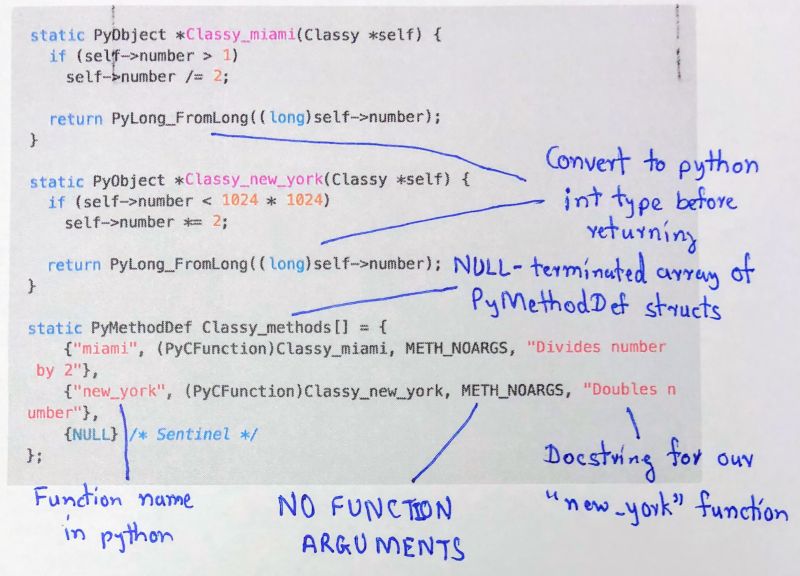 static PyObject *Classy_miami(Classy *self) {
if (self->number > 1)
self->number /= 2;
return PyLong_FromLong((long)self->number);
}
static PyObject *Classy_new_york(Classy *self) {
if (self->number < 1024 * 1024)
self->number *= 2;
return PyLong_FromLong((long)self->number);
}
Convert to python
int type before
returning
NULL-terminated array of
PyMethodDef structs
static PyMethodDef Classy_methods[] = {
{"miami", (PyCFunction)Classy_miami, METH_NOARGS, "Divides number
by 2"},
{"new_york", (PyCFunction)Classy_new_york, METH_NOARGS, "Doubles n
umber"},
{NULL} /* Sentinel */
};
Function name
in python
NO FUNCTION
ARGUMENTS
Docstring for our
"new_york" function